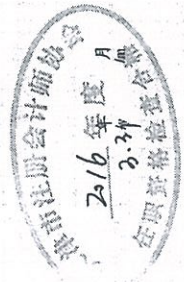 市注册会计师协会
2016 年度
月 日
任职资格检查合格